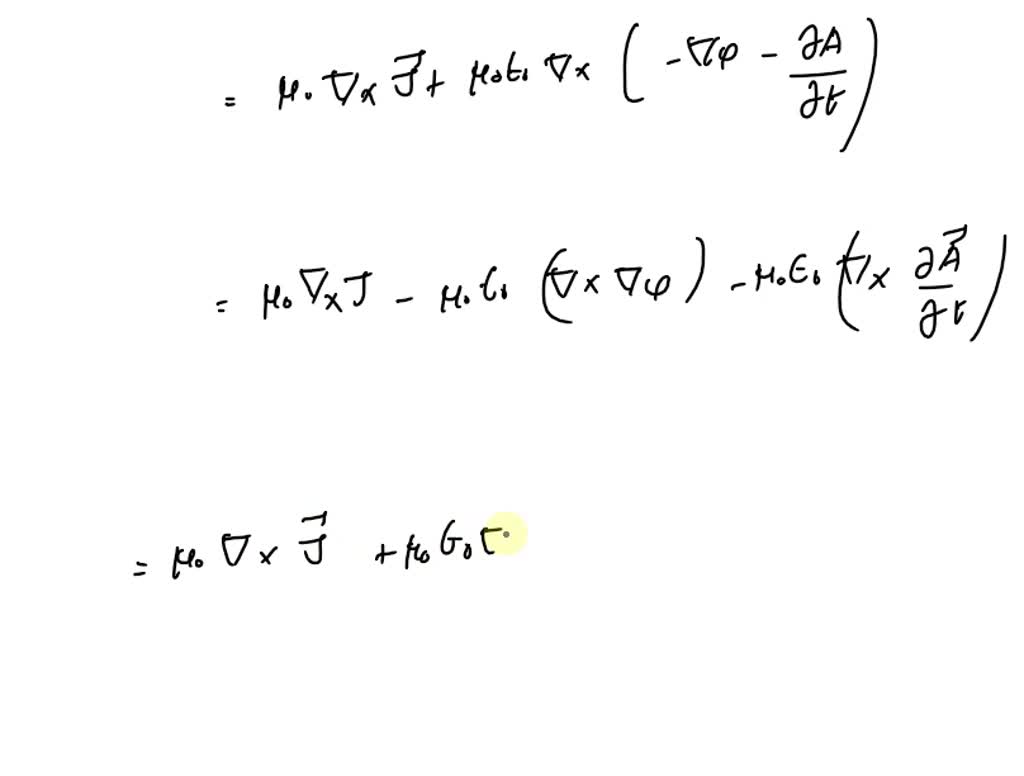 = μ₀ ∇×J⃗ + μ₀ϵ₀ ∇× ( -∇φ - ∂A/∂t )
= μ₀ ∇×J - μ₀ϵ₀ (∇×∇φ) - μ₀ϵ₀ (∇× ∂A⃗/∂t)
= μ₀ ∇× J⃗ + μ₀ϵ₀